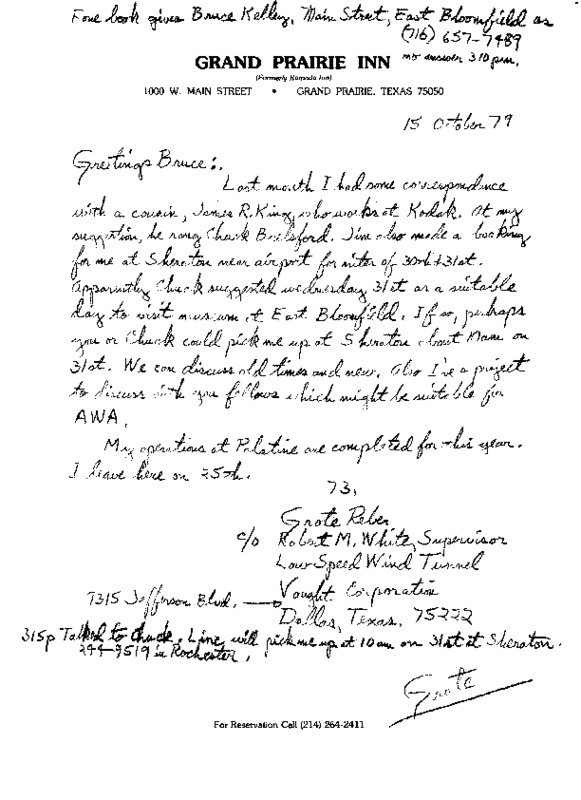 Fone book gives Bruce Kelley, Main Street, East Bloomfield as
(716) 657-7489
no answer 310 pm.
GRAND PRAIRIE INN
(Formerly Ramada Inn)
1000 W. MAIN STREET • GRAND PRAIRIE, TEXAS 75050
15 October 79
Greetings Bruce:.
Last month I had some correspondence
with a cousin, James R. King, who works at Kodak. At my
suggestion, he rang Chuck Brelsford. Jim also made a booking
for me at Sheraton near airport for nites of 30th & 31st.
Apparently Chuck suggested wednesday 31st as a suitable
day to visit museum at East Bloomfield. If so, perhaps
you or Chuck could pick me up at Sheraton about 10am on
31st. We can discuss old times and new. Also I've a project
to discuss with you fellows which might be suitable for
AWA.
My operations at Palestine are completed for this year.
I leave here on 25th.
73,
Grote Reber
c/o Robert M. White, Supervisor
Low Speed Wind Tunnel
Vought Corporation
7315 Jefferson Blvd.
Dallas, Texas, 75222
315p Talked to Chuck. Linc will pick me up at 10am on 31st at Sheraton.
244-9519 in Rochester.
Grote
For Reservation Call (214) 264-2411